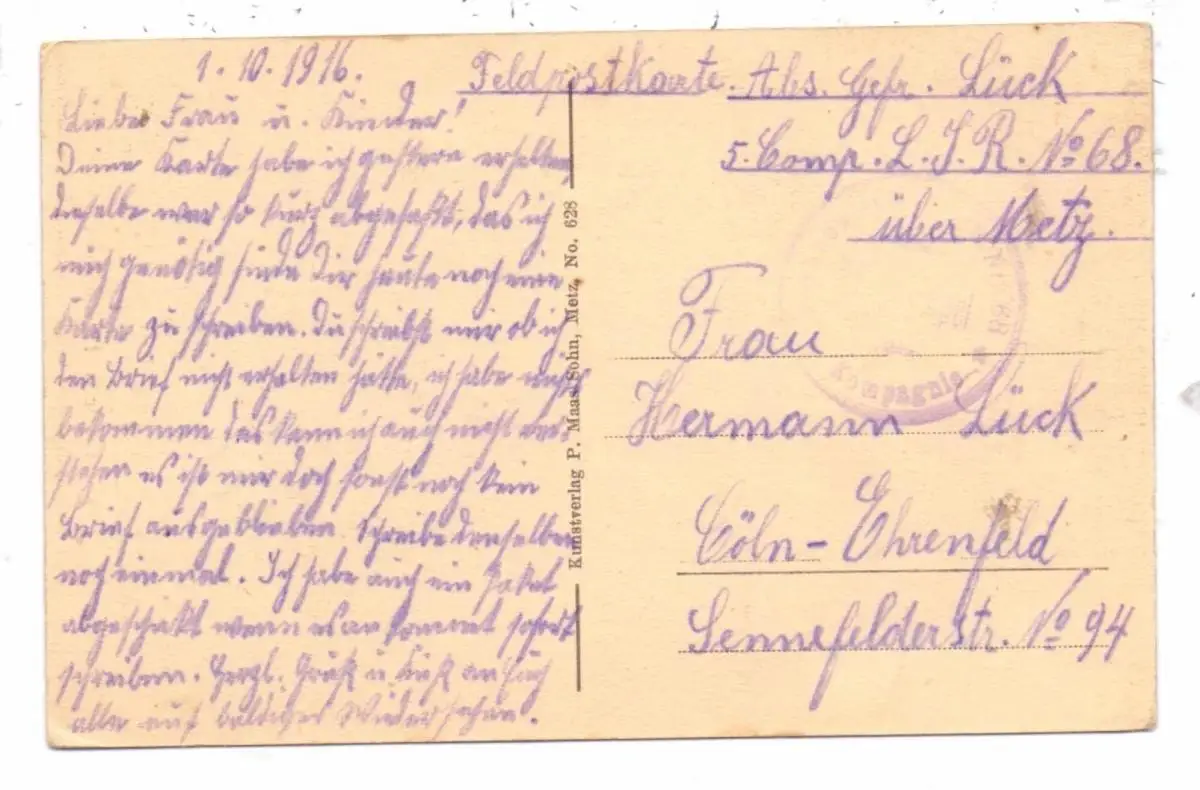 1. 10. 1916.
Liebe Frau u. Kinder!
Deine Karte habe ich gestern erhalten
dieselbe war so kurz abgefaßt, das ich
mich genötig finde Dir heute noch eine
Karte zu schreiben. Du schreibst mir ob ich
den Brief nicht erhalten hätte, ich habe nichts
bekommen das kann ich auch nicht ver-
stehen es ist mir doch sonst noch kein
Brief ausgeblieben. Schreibe denselben
noch einmal. Ich habe auch ein Paket
abgeschikt wenn es an kommt sofort
schreiben. Herzl. Gruß u. Kuß an Euch
alle auf baldiges Wiedersehen.
Kunstverlag P. Maas Sohn, Metz, No. 628
Feldpostkarte. Abs. Gefr. Lück
5. Comp. L. I. R. No 68.
über Metz.
Kompagnie
Frau
Hermann Lück
Cöln - Ehrenfeld
Sennefelderstr. No 94